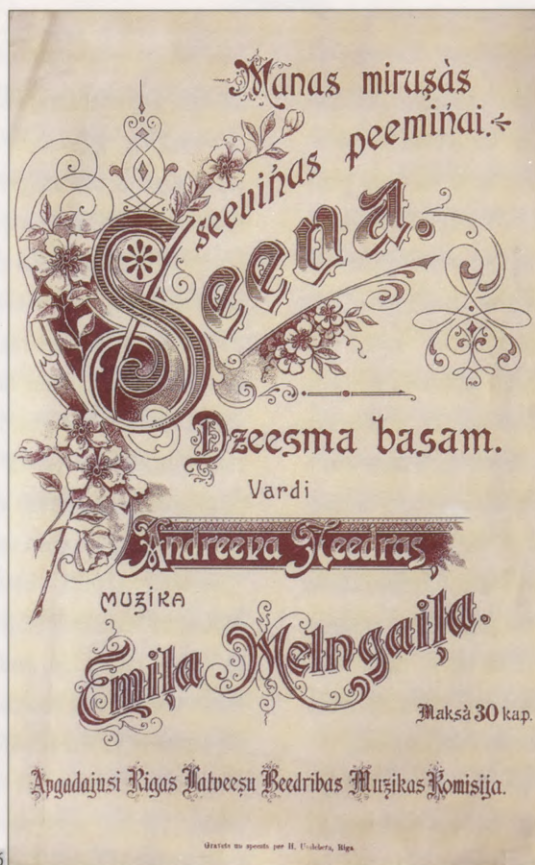 Manas mirușàs
seeviņas peemiņai.
Seeva.
Dzeesma basam.
Vardi
Andreeva Needras,
MUZIKA
Emiļa Melngaiļa.
Maksà 30 kap.
Apgadajusi Rigas Latveeșu Beedribas Muzikas Komisija.
per H. Riga